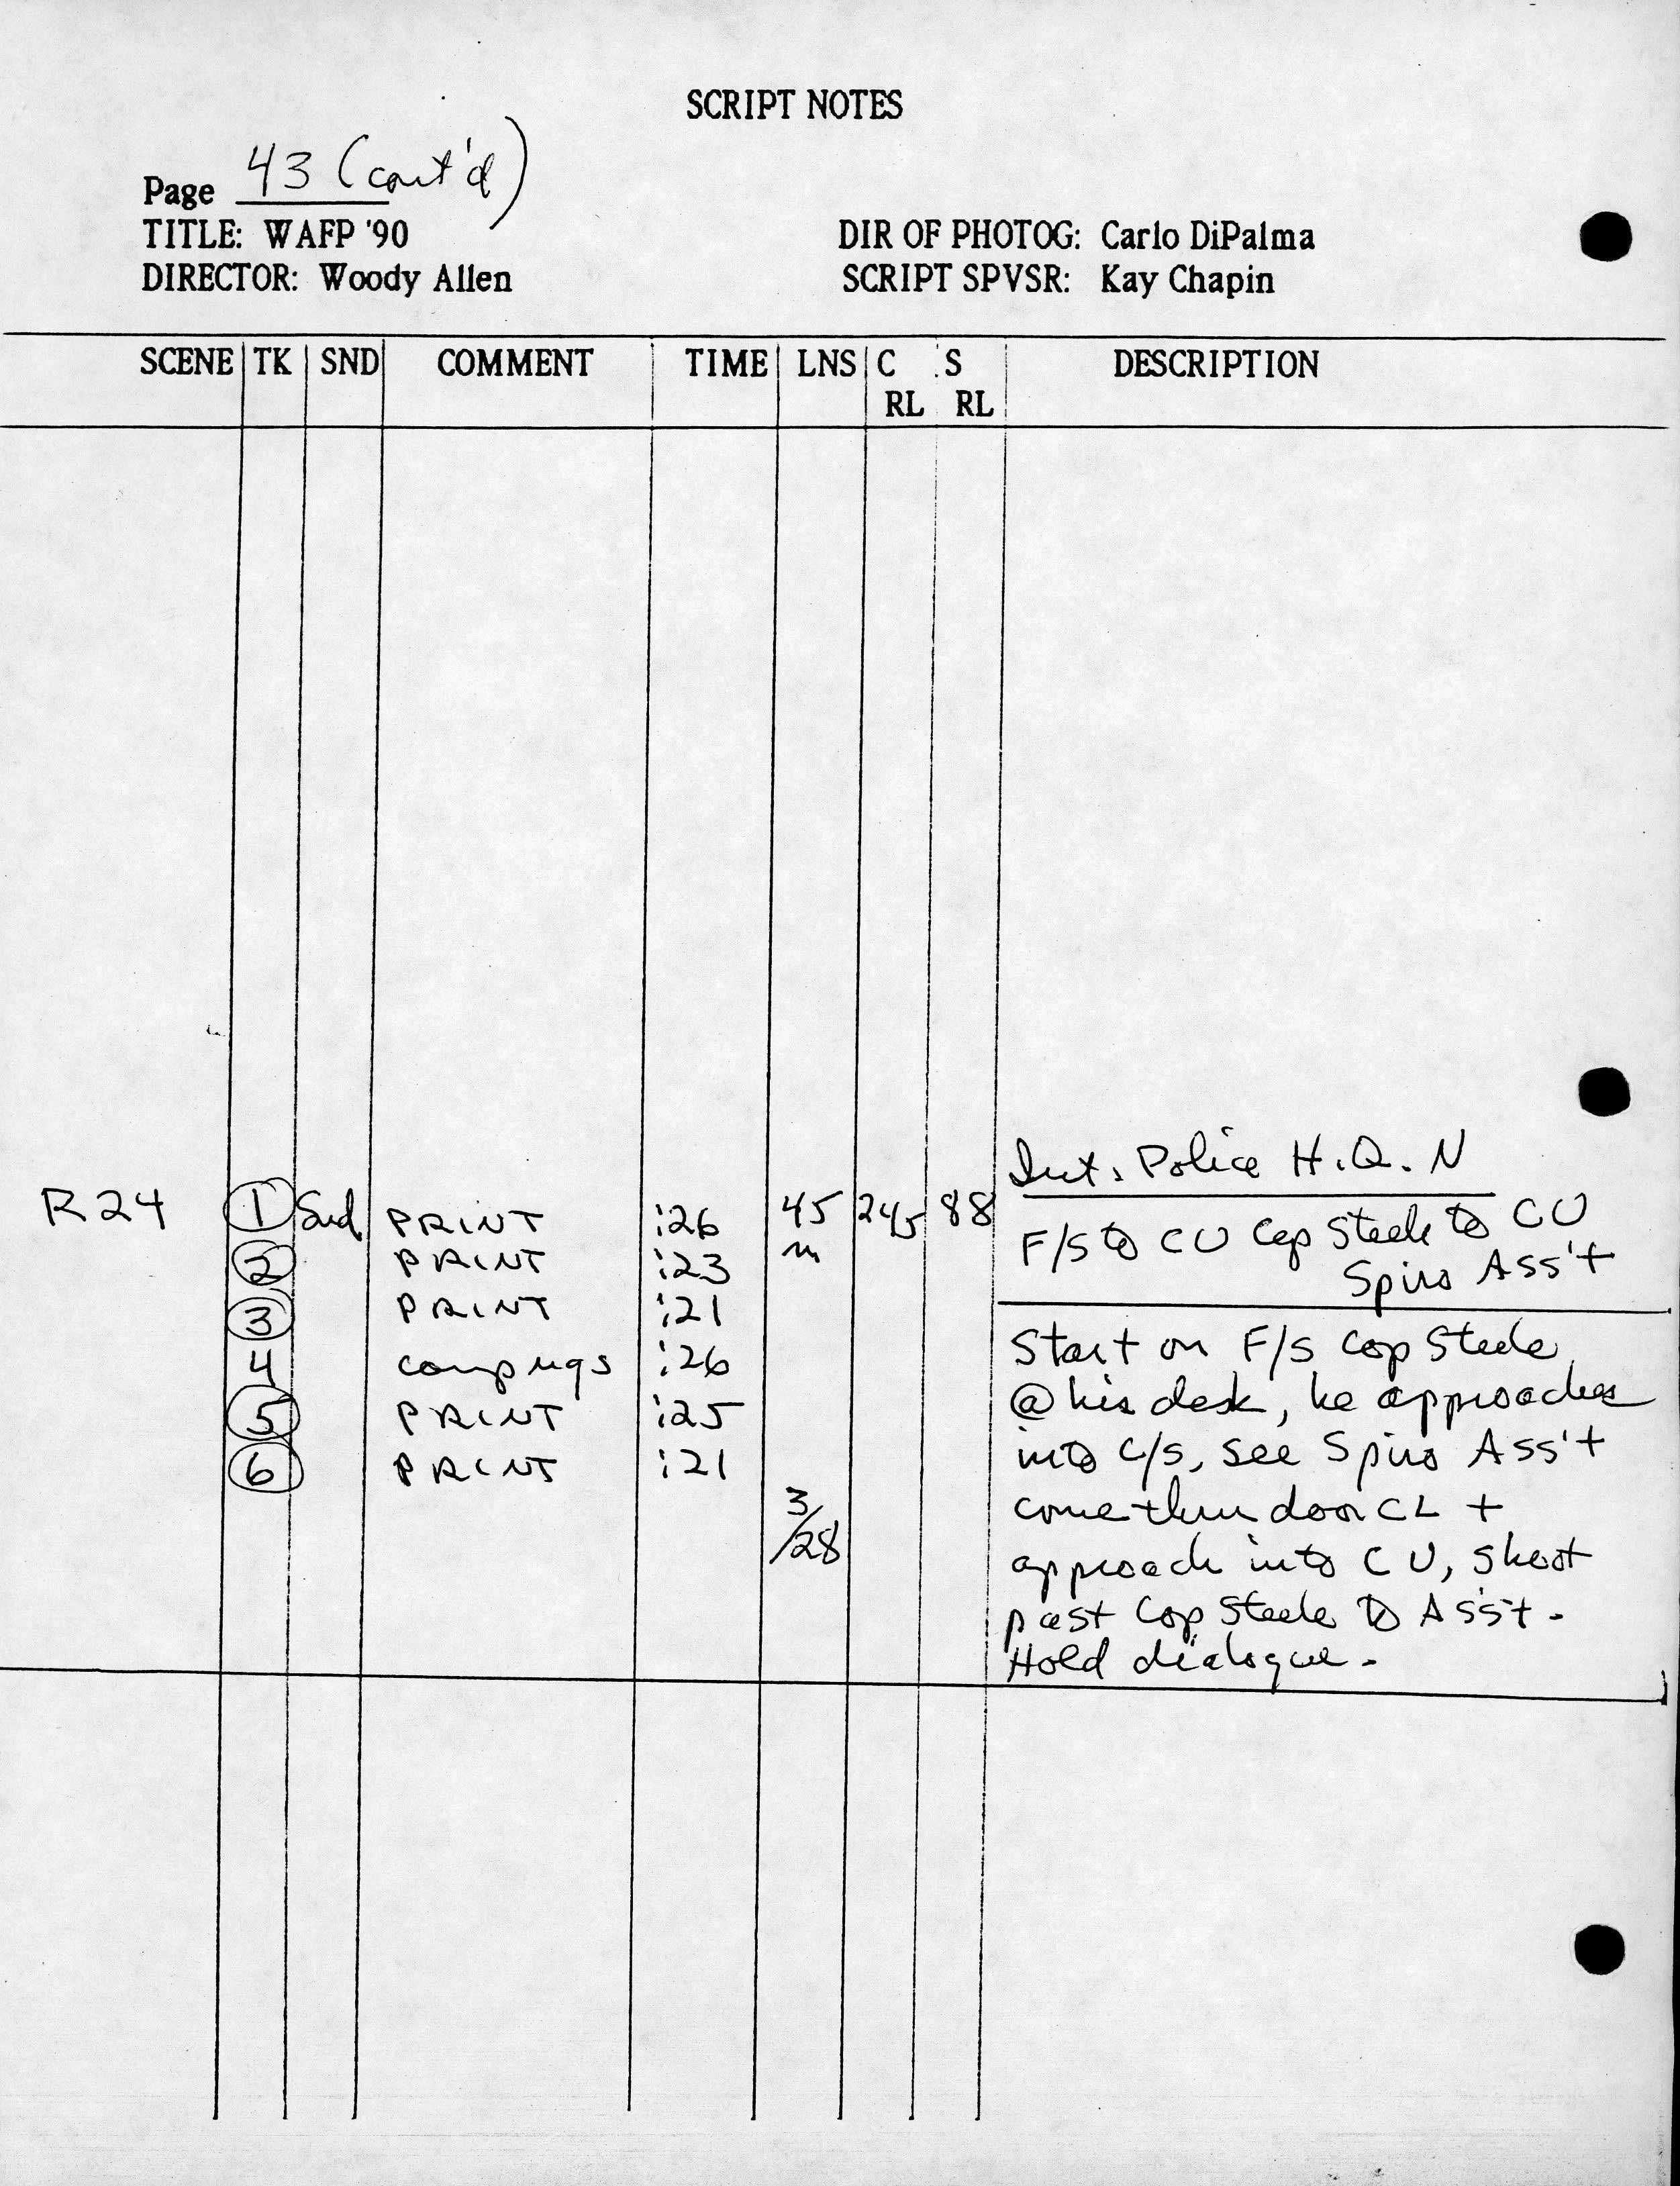 SCRIPT NOTES
Page 43 (cont'd)
TITLE: WAFP '90
DIR OF PHOTOG: Carlo DiPalma
DIRECTOR: Woody Allen
SCRIPT SPVSR: Kay Chapin
SCENE TK SND COMMENT TIME LNS C S DESCRIPTION
RL RL
Int. Police H.Q. N
R24 1 Snd PRINT :26 45 245 88
m
F/S to CU Cop Steele to CU
Spiro Ass't
2 PRINT :23
3 PRINT :21
4 comp ngs :26
5 PRINT :25
6 PRINT :21
3/28
Start on F/S Cop Steele
@ his desk, he approaches
into C/S, see Spiro Ass't
come thru door CL +
approach into CU, shoot
past Cop Steele to Ass't.
Hold dialogue.